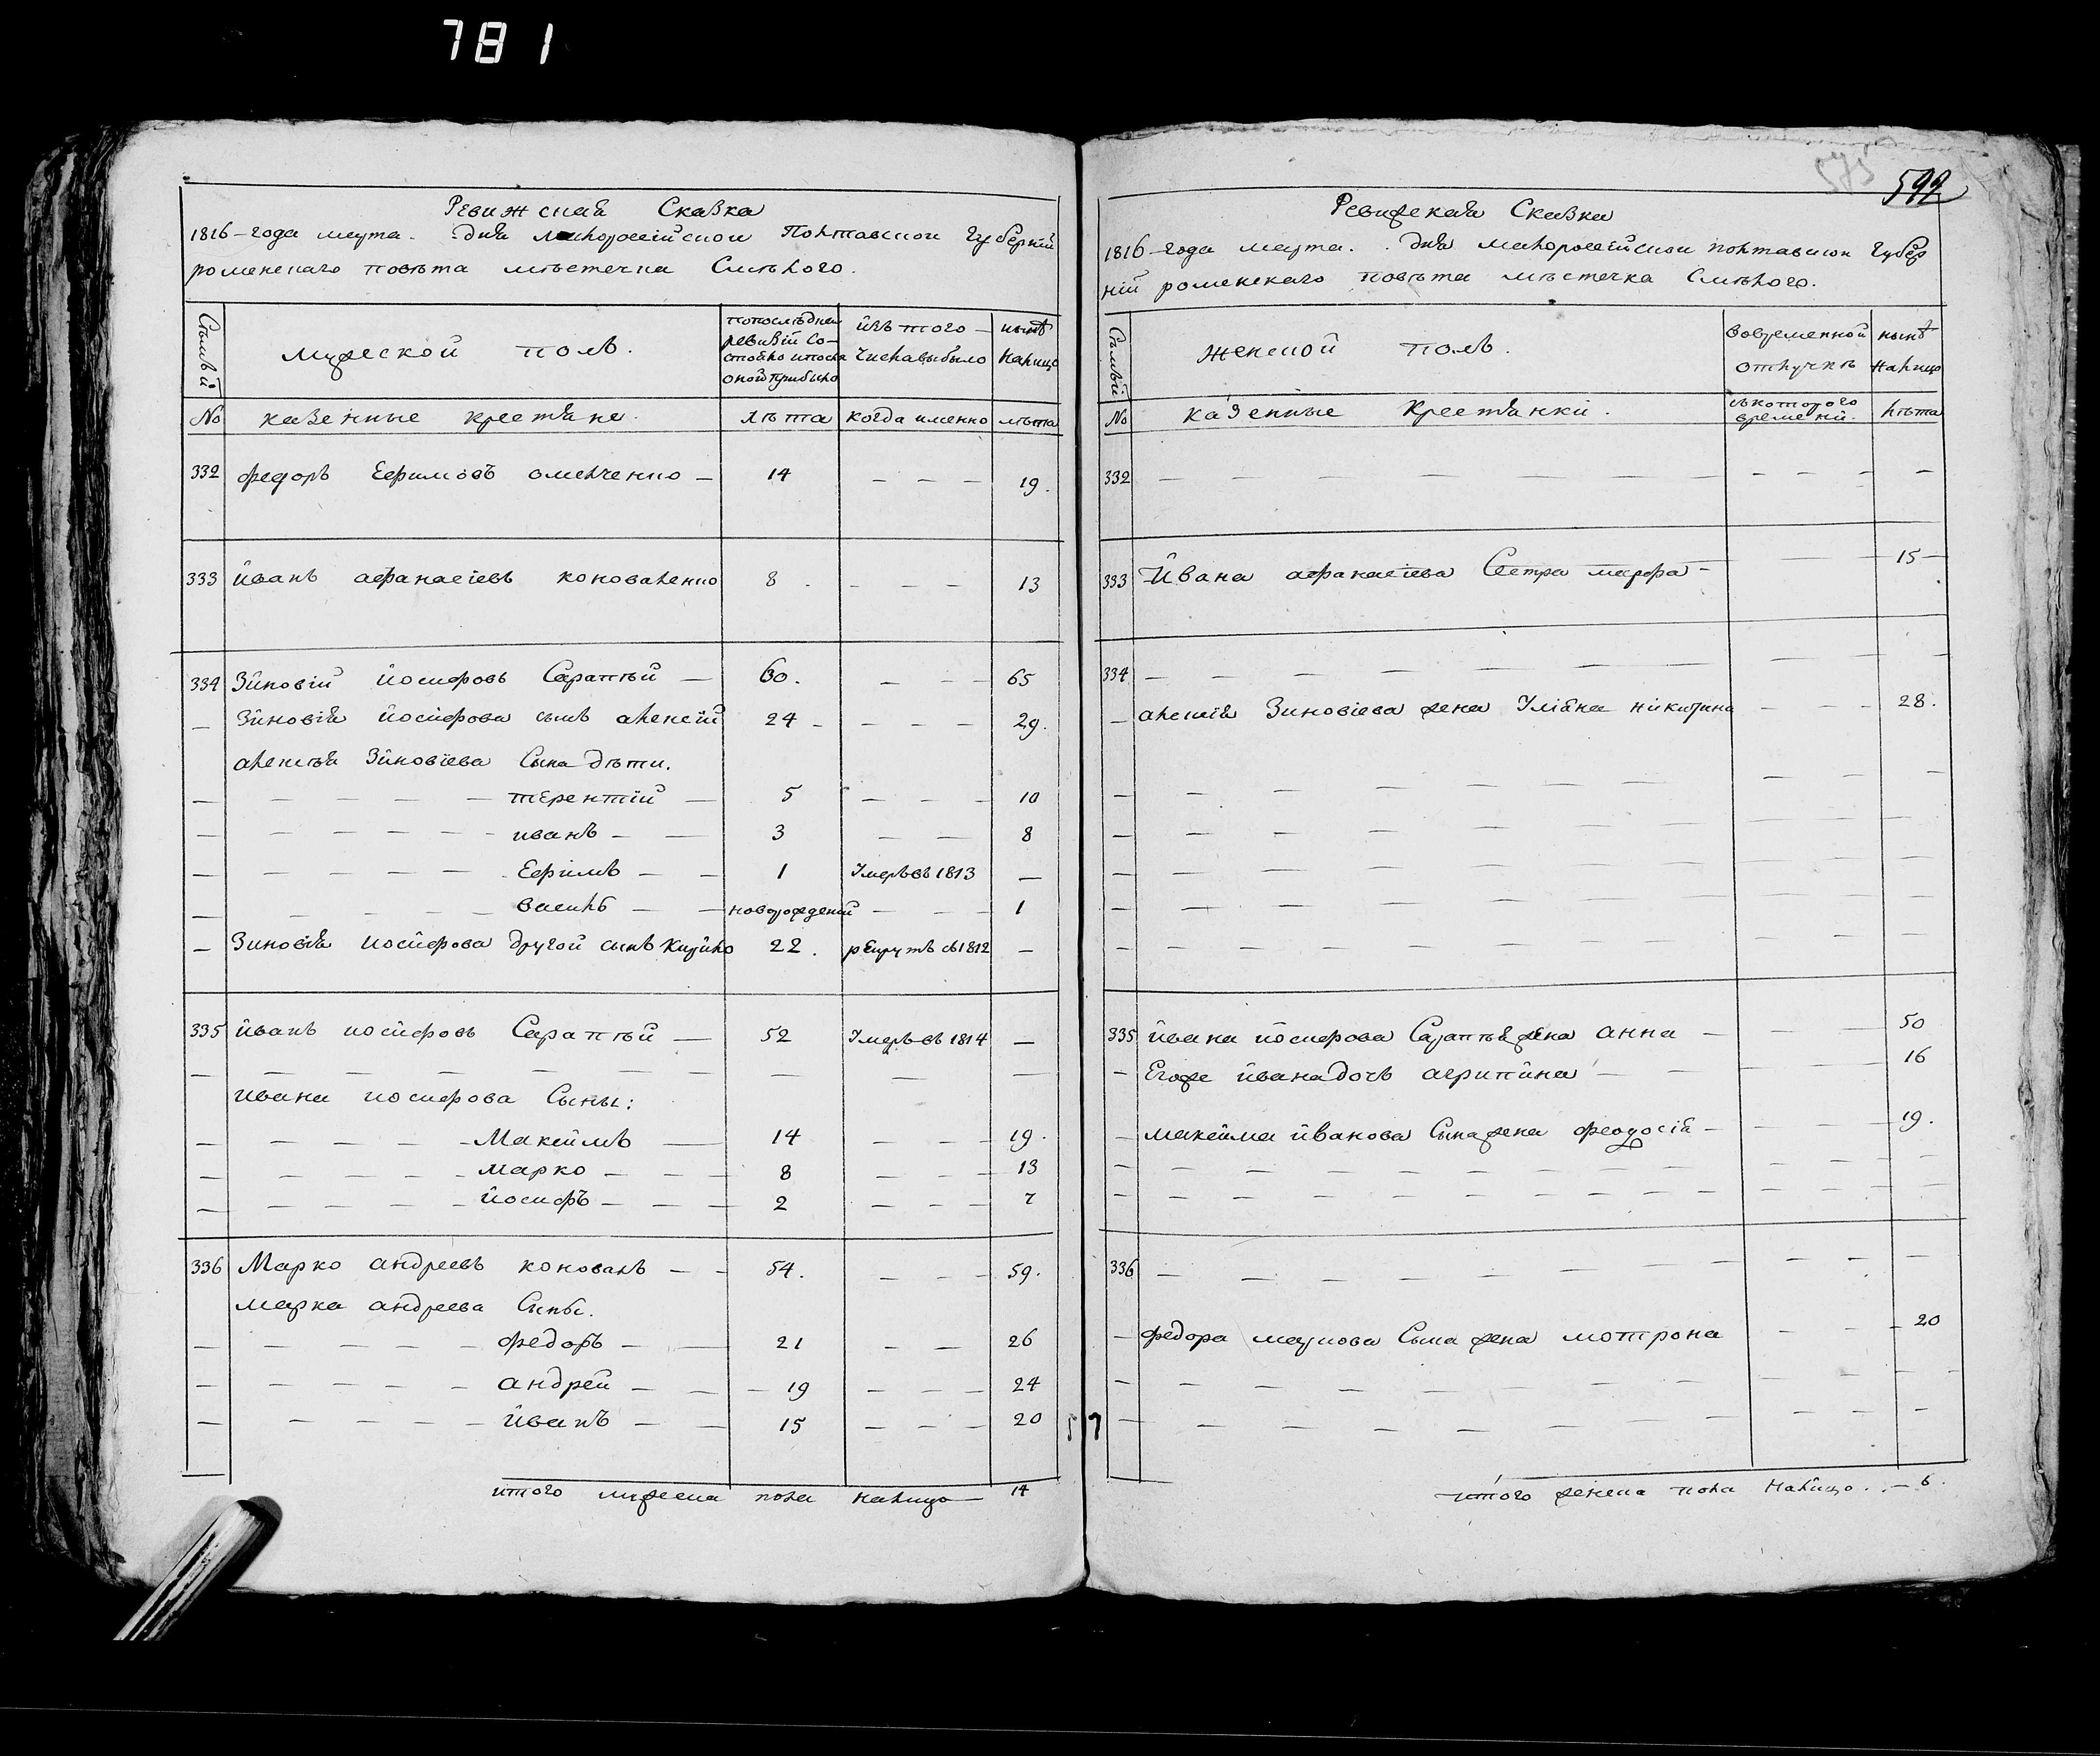 781
Ревижская Сказка
1816-года марта. дня малоросейской Полтавской губерній
роменскаго повѣта мѣстечка Смѣлого.
Семьи
Мужеской полъ.
попослѣдней
ревизій Со-
стояло ипосля
оной прибыло
изъ того
Числа выбыло
нынѣ
налицо
№ казенные крестяне. лѣта когда именно лѣта
332 федоръ Ефимовъ омелченко — 14 — — — 19.
333 иванъ афанасіевъ коноваленко 8 . — — — 13
334 Зиновій иосифовъ Сарапѣй — 60. — — — 65
— Зиновія иосифова сынъ алексій 24 — — — — 29.
алексѣя Зиновіева Сына дѣти.
— — — — — — терентій — 5 — — — 10
— — — — — — иванъ — — 3 — — 8
— — — — — — Ефимъ — — 1 Умеръ въ 1813 —
— — — — — — василь — — новорожденій — — — 1
— Зиновія иосифова другой сынъ Кирило 22. рекрутъ съ 1812 —
335 иванъ иосифовъ Сарапѣй — 52 Умеръ въ 1814 —
— — — — — — — — — —
ивана иосифова Сыны:
— — — — — — Максимъ — 14 — — — 19.
— — — — — — Марко — — — 8 — — — 13
— — — — — — иосифъ — — — 2 — — — 7
336 Марко андреевъ коновалъ — — 54. — — — 59.
марка андреева Сыны.
— — — — — — федоръ — — 21 — — 26
— — — — — — андрей — — — 19 — — — 24
— — — — — — иванъ — — 15 — — — 20
итого мужеска пола налицо — 14
575
592
Ревижская Сказка
1816-года марта. . дня малоросейской полтавской губер
ній роменскаго повѣта мѣстечка Смѣлого.
Семьи
Женской полъ.
вовременной
отлучкѣ
нынѣ
налицо
№ казенные Крестянки. съкоторого
времени. лѣта
332 — — — — — — — — — — —
333 Ивана афанасіева Сестра марфа — — — 15 —
334 — — — — — — — — — —
— алексія Зиновіева жена Уліяна никитина — — — 28.
— — — — — — — — — —
— — — — — — — — — —
— — — — — — — — — —
— — — — — — — — — —
— — — — — — — — — —
335 ивана иосифова Сарапѣя жена анна — — — 50
— Егоже ивана дочь агрипина — — — — 16
— максима иванова Сына жена феодосія — — — — 19.
— — — — — — — — — —
— — — — — — — — — —
336 — — — — — — — — — —
— федора маркова Сына жена мотрона — — — 20
— — — — — — — — — —
— — — — — — — — — —
итого женска пола налицо. . — 6.